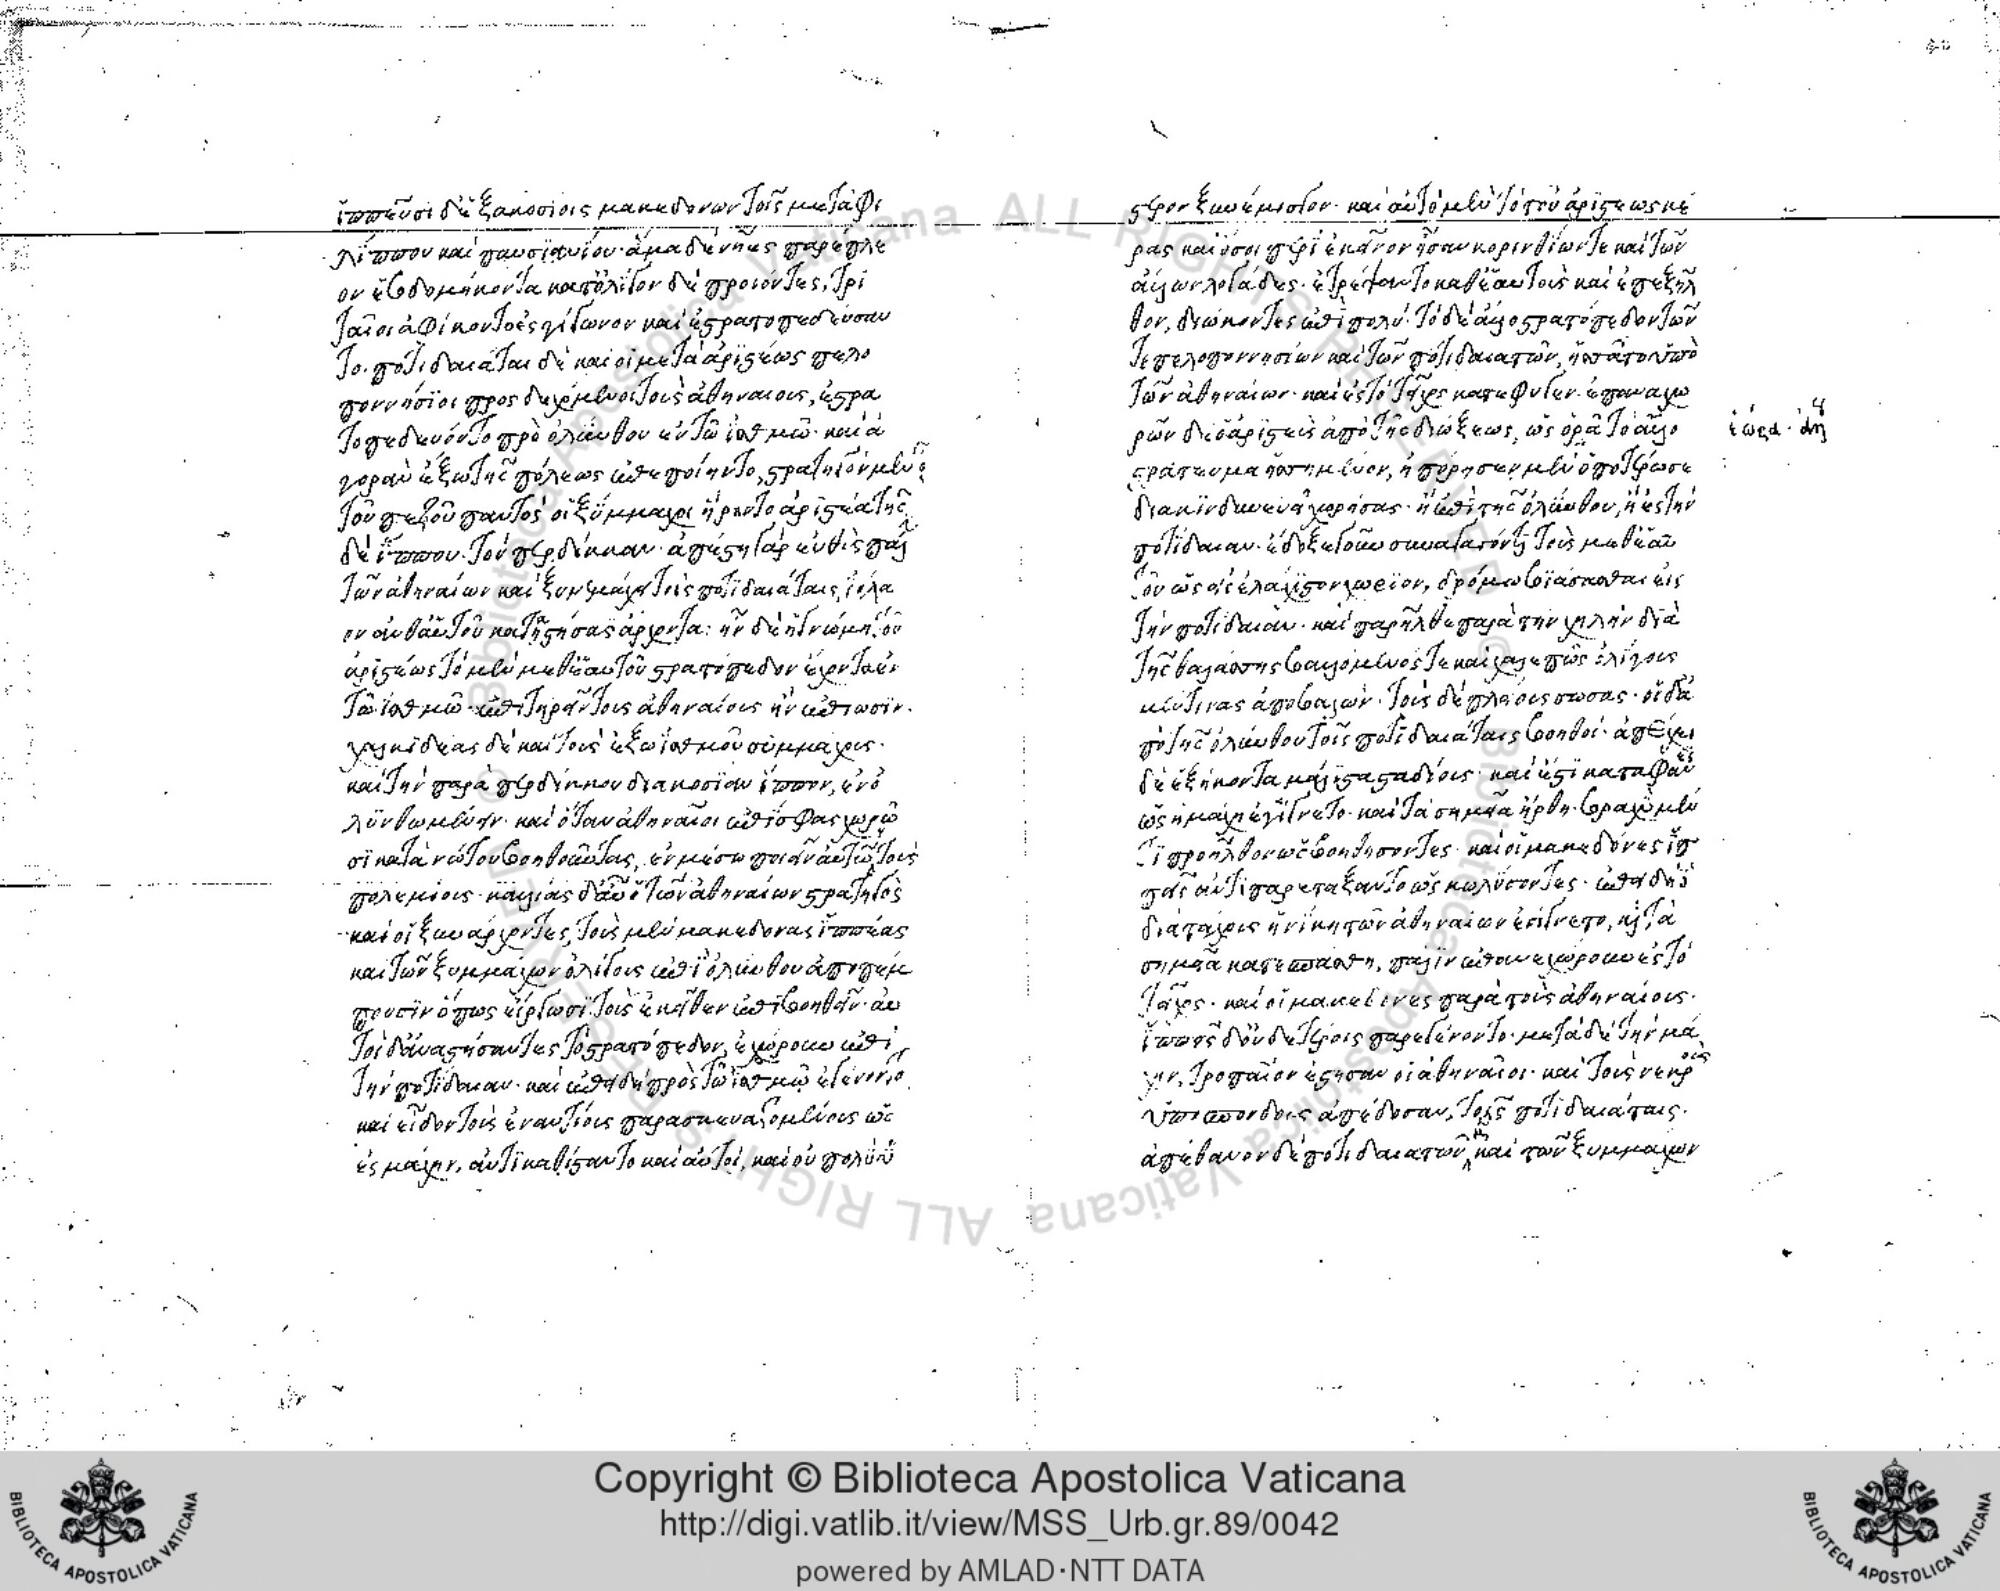 ἱππεῦσι δὲ ἑξακοσίοις μακεδόνων τοῖς μετὰ φι
λίππου καὶ παυσανίου· ἅμα δὲ νῆες παρέπλε
ον ἑβδομήκοντα κατ' ὀλίγον δὲ προϊόντες, τρι
ταῖοι ἀφίκοντο ἐς γίγωνον καὶ ἐστρατοπεδεύσαν
το· ποτιδαιάται δὲ καὶ οἱ μετὰ ἀριστέως πελο
ποννήσιοι προσδεχόμενοι τοὺς ἀθηναίους, ἐστρα
τοπεδεύοντο πρὸ ὀλύνθου ἐν τῷ ἰσθμῷ· καὶ ἀ
γορὰν ἔξω τῆς πόλεως ἐπεποίηντο, στρατηγὸν μὲν
τοῦ πεζοῦ παντὸς οἱ ξύμμαχοι ᾕρηντο ἀριστέα τῆς
δὲ ἵππου· τὸν περδίκκαν· ἀπέστη γὰρ εὐθὺς πάλ
τῶν ἀθηναίων καὶ ξυνεμάχει τοῖς ποτιδαιάταις, ἰόλα
ον ἀνθ' αὑτοῦ καταστήσας ἄρχοντα· ἦν δὲ ἡ γνώμη τοῦ
ἀριστέως τὸ μὲν μεθ' ἑαυτοῦ στρατόπεδον ἔχοντα ἐν
τῷ ἰσθμῷ· ἐπιτηρεῖν τοὺς ἀθηναίους ἢν ἐπίωσιν·
χαλκιδέας δὲ καὶ τοὺς ἔξω ἰσθμοῦ συμμάχους·
καὶ τὴν παρὰ περδίκκου διακοσίαν ἵππον, ἐν ὀ
λύνθῳ μένειν· καὶ ὅταν ἀθηναῖοι ἐπὶ σφᾶς χωρῶ
σι κατὰ νώτου βοηθοῦντας, ἐν μέσῳ ποιεῖν αὐτῶν τοὺς
πολεμίους· καλλίας δ' αὖ ὁ τῶν ἀθηναίων στρατηγὸς
καὶ οἱ ξυνάρχοντες, τοὺς μὲν μακεδόνας ἱππέας
καὶ τῶν ξυμμάχων ὀλίγους ἐπὶ ὀλύνθου ἀποπέμ
πουσιν ὅπως εἴργωσι τοὺς ἐκεῖθεν ἐπιβοηθεῖν· αὐ
τοὶ δ' ἀναστήσαντες τὸ στρατόπεδον, ἐχώρουν ἐπὶ
τὴν ποτίδαιαν· καὶ ἐπειδὴ πρὸς τῷ ἰσθμῷ ἐγένοντο
καὶ εἶδον τοὺς ἐναντίους παρασκευαζομένους ὡς
ἐς μάχην, ἀντικαθίσταντο καὶ αὐτοί, καὶ οὐ πολὺ ὕ
στερον ξυνέμισγον· καὶ αὐτὸ μὲν τὸ τοῦ ἀριστέως κέ
ρας καὶ ὅσοι περὶ ἐκεῖνον ἦσαν κορινθίων τε καὶ τῶν
ἄλλων λογάδες· ἔτρεψαν τὸ καθ' ἑαυτοὺς καὶ ἐπεξῆλ
θον, διώκοντες ἐπὶ πολύ· τὸ δὲ ἄλλο στρατόπεδον τῶν
τε πελοποννησίων καὶ τῶν ποτιδαιατῶν, ἡσσᾶτο ὑπὸ
τῶν ἀθηναίων· καὶ ἐς τὸ τεῖχος κατέφυγεν· ἐπαναχω
ρῶν δὲ ὁ ἀριστεὺς ἀπὸ τῆς διώξεως, ὡς ὁρᾷ τὸ ἄλλο
στράτευμα ἡσσημένον, ἠπόρησεν μὲν ὁποτέρωσε
διακινδυνεύσῃ χωρήσας· ἢ ἐπὶ τῆς ὀλύνθου, ἢ ἐς τὴν
ποτίδαιαν· ἔδοξε γοῦν συναγαγόντι τοὺς μεθ' ἑαυ
τοῦ ὡς ἐς ἐλάχιστον χωρίον, δρόμῳ βιάσασθαι ἐς
τὴν ποτίδαιαν· καὶ παρῆλθε παρὰ τὴν χηλὴν διὰ
τῆς θαλάσσης βαλλόμενός τε καὶ χαλεπῶς ὀλίγους
μέν τινας ἀποβαλών· τοὺς δὲ πλείους σώσας· οἱ δ' ἀ
πὸ τῆς ὀλύνθου τοῖς ποτιδαιάταις βοηθοί· ἀπέχει
δὲ ἑξήκοντα μάλιστα σταδίους· καὶ ἔστι καταφανές
ὡς ἡ μάχη ἐγίγνετο· καὶ τὰ σημεῖα ἤρθη· βραχὺ μέν
τι προῆλθον ὡς βοηθήσοντες· καὶ οἱ μακεδόνες ἱπ
πεῖς ἀντιπαρετάξαντο ὡς κωλύσοντες· ἐπειδὴ δὲ
διὰ τάχους ἡ νίκη τῶν ἀθηναίων ἐγίγνετο, καὶ τὰ
σημεῖα κατεσπάσθη, πάλιν ἐπανεχώρουν ἐς τὸ
τεῖχος· καὶ οἱ μακεδόνες παρὰ τοὺς ἀθηναίους·
ἱππῆς δ' οὐδετέροις παρεγένοντο· μετὰ δὲ τὴν μά
χην, τροπαῖον ἔστησαν οἱ ἀθηναῖοι· καὶ τοὺς νεκρούς
ὑποσπόνδους ἀπέδοσαν, τοῖς ποτιδαιάταις·
ἀπέθανον δὲ ποτιδαιατῶν καὶ τῶν ξυμμάχων
Copyright © Biblioteca Apostolica Vaticana
http://digi.vatlib.it/view/MSS_Urb.gr.89/0042
powered by AMLAD·NTT DATA
BIBLIOTECA APOSTOLICA VATICANA
BIBLIOTECA APOSTOLICA VATICANA